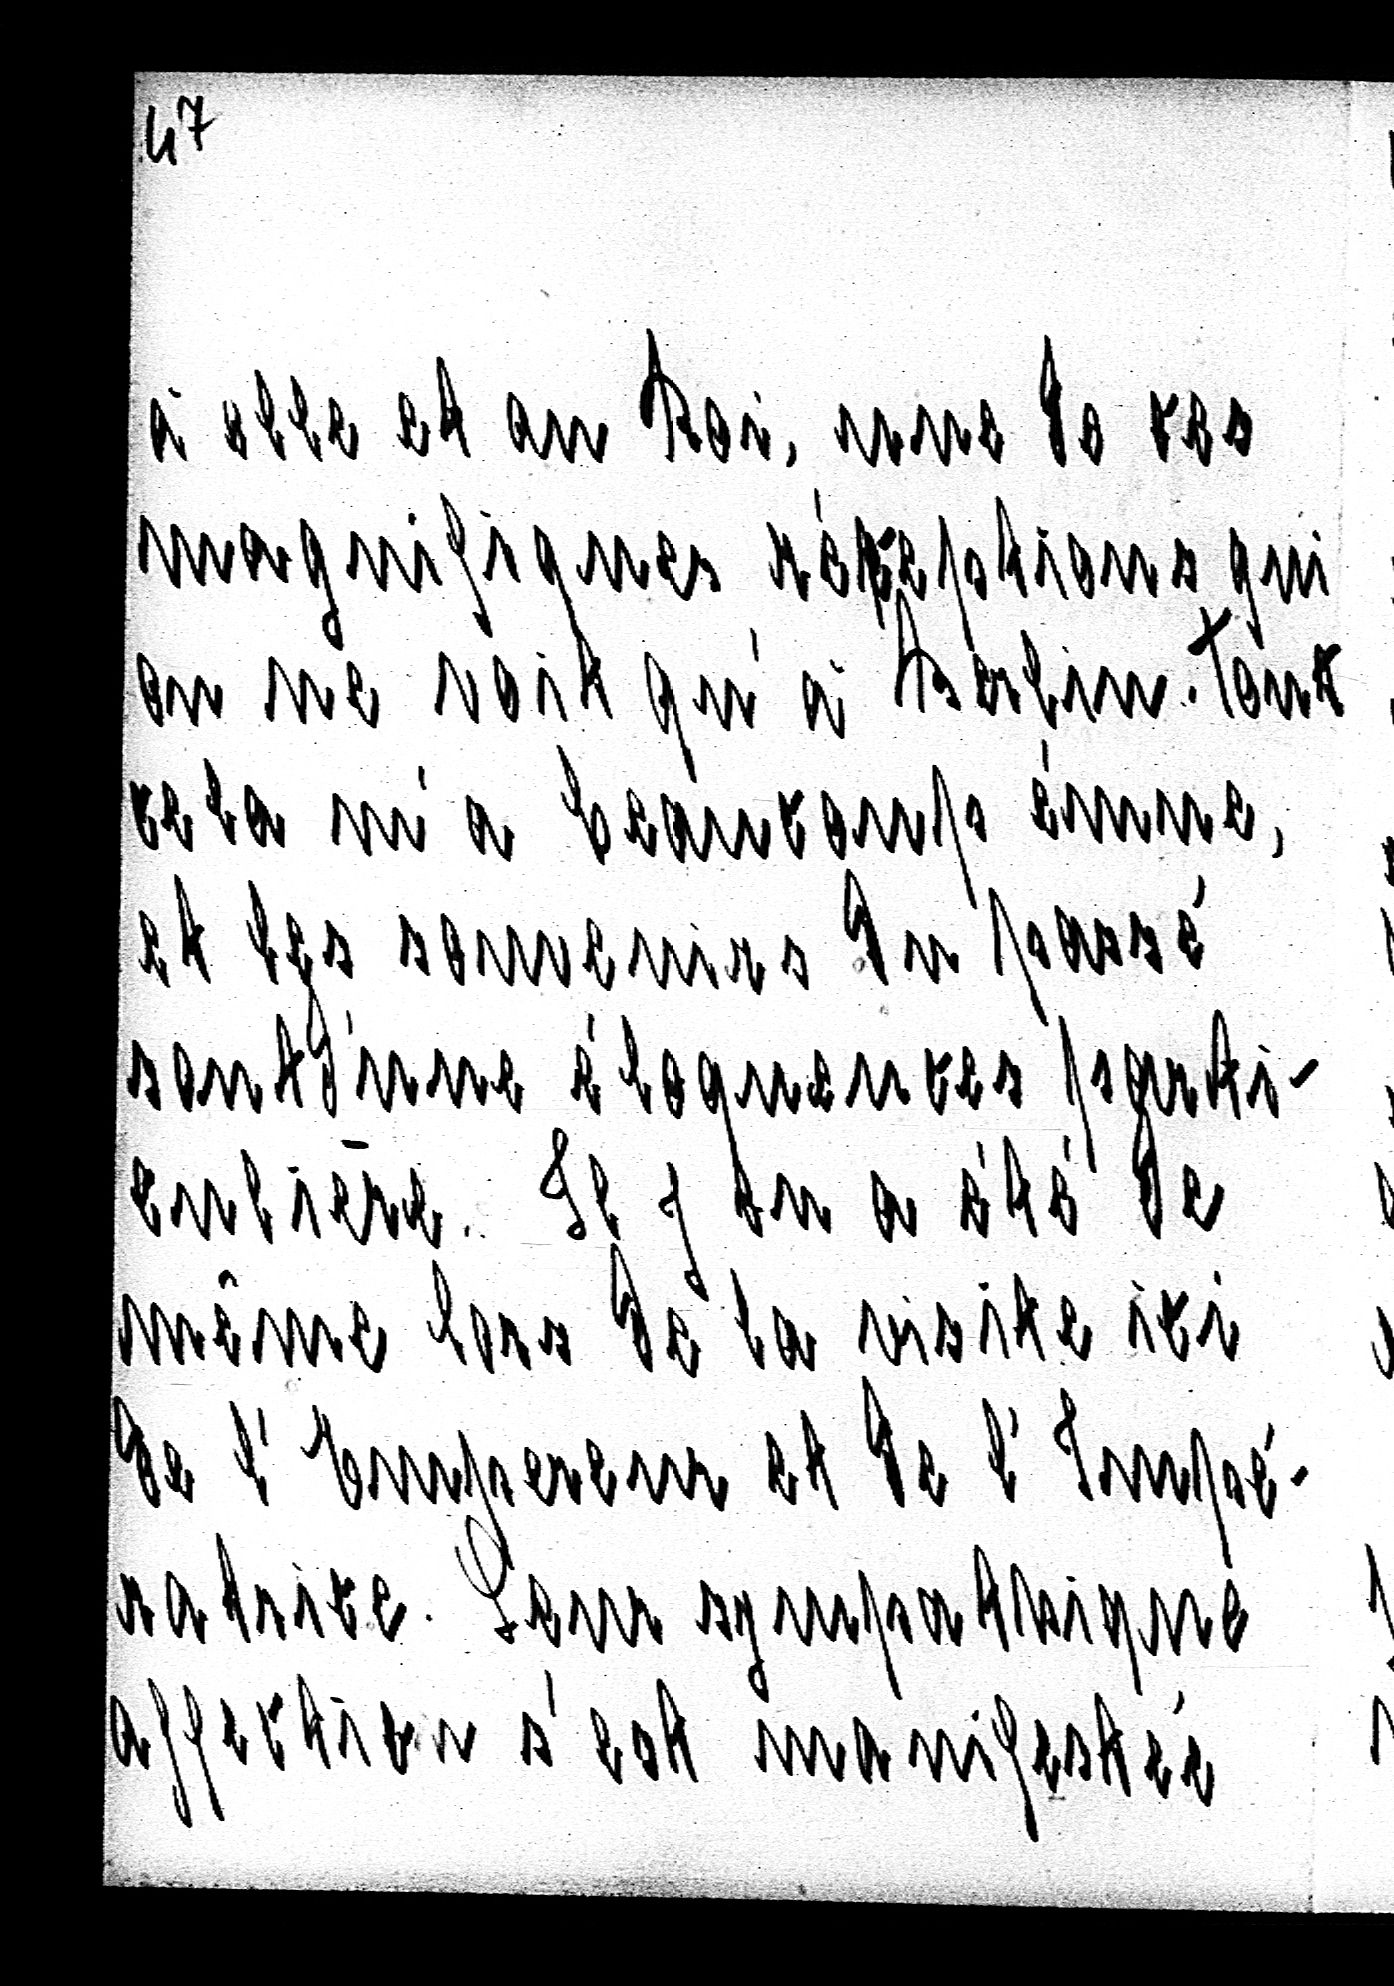 47
à elle et au Roi, une de ces
magnifiques réceptions qui
on ne voit qu'à Berlin. Tout
cela m'a beaucoup émue,
et les souvenirs du passé
sont d'une éloquences parti-
culière. Il y en a été de
même lors de la visite ici
de l'Empereur et de l'Impé-
ratrice. Leur sympathique
affection s'est manifestée